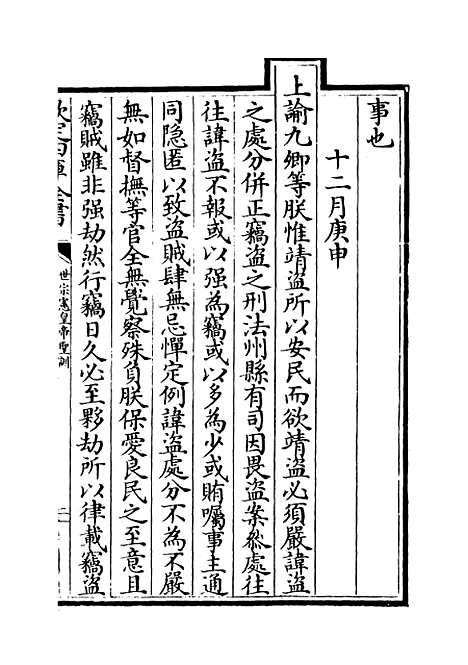 事也
十二月庚申
上諭九卿等朕惟靖盜所以安民而欲靖盜必須嚴諱盜
之處分併正竊盜之刑法州縣有司因畏盜案叅處往
往諱盜不報或以强為竊或以多為少或賄囑事主通
同隐匿以致盜賊肆無忌憚定例諱盜處分不為不嚴
無如督撫等官全無覺察殊負朕保愛良民之至意且
竊賊雖非强劫然行竊日久必至夥劫所以律載竊盜
欽定四庫全書
世宗憲皇帝聖訓